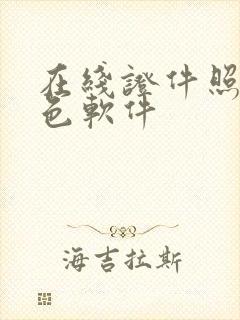 在綫證件照
色軟件
海吉拉斯